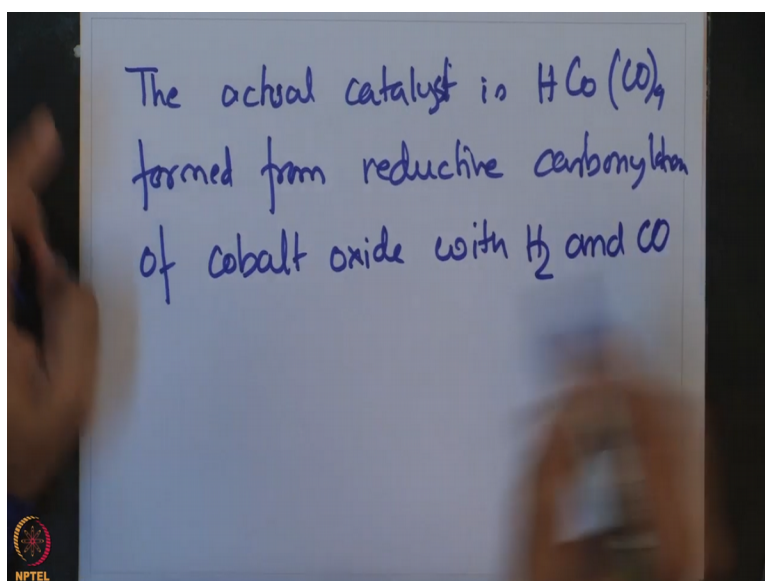 The actual catalyst is HCo(CO)4
formed from reductive carbonylation
of cobalt oxide with H2 and CO
NPTEL